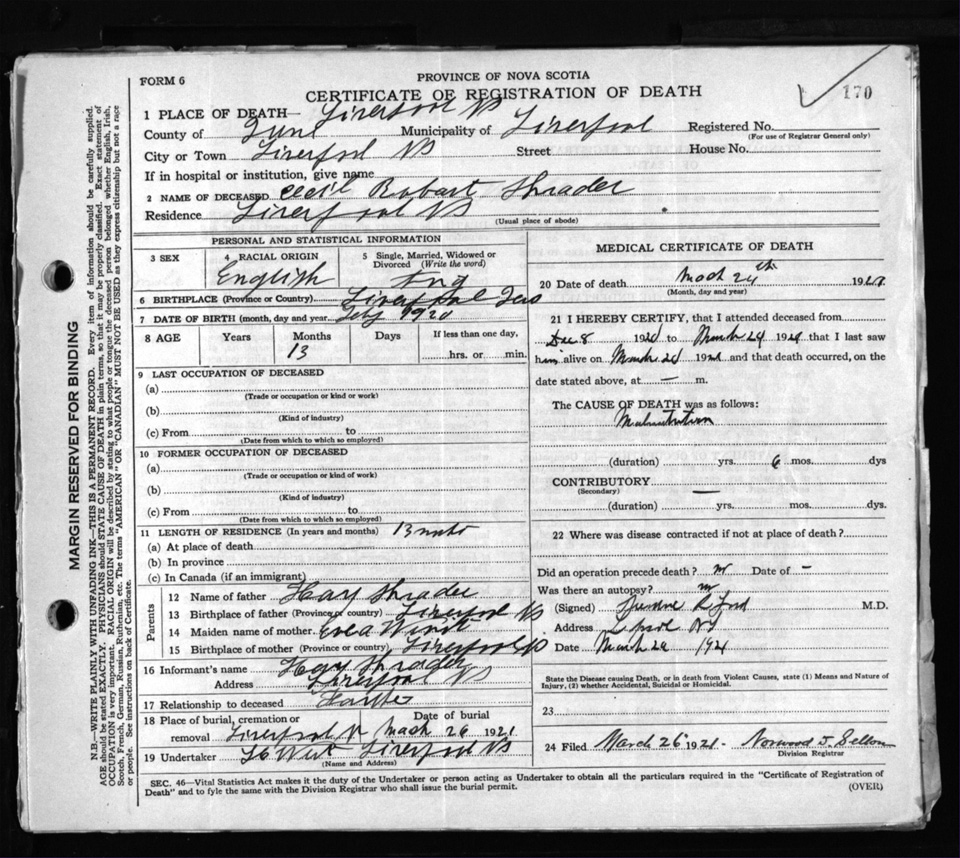 FORM 6
PROVINCE OF NOVA SCOTIA
CERTIFICATE OF REGISTRATION OF DEATH
170
1 PLACE OF DEATH— Liverpool NS
County of Municipality of Liverpool Registered No.
(For use of Registrar General only)
City or Town Liverpool NS Street House No.
If in hospital or institution, give name
2 NAME OF DECEASED Cecil Robart Shrader
Residence Liverpool NS
(Usual place of abode)
PERSONAL AND STATISTICAL INFORMATION
3 SEX 4 RACIAL ORIGIN English 5 Single, Married, Widowed or Divorced (Write the word)
6 BIRTHPLACE (Province or Country) Liverpool
7 DATE OF BIRTH (month, day and year) 1920
8 AGE Years Months 13 Days If less than one day, hrs. or min.
9 LAST OCCUPATION OF DECEASED
(a)
(Trade or occupation or kind or work)
(b)
(Kind of industry)
(c) From to
(Date from which to which so employed)
10 FORMER OCCUPATION OF DECEASED
(a)
(Trade or occupation or kind or work)
(b)
(Kind of industry)
(c) From to
(Date from which to which so employed)
11 LENGTH OF RESIDENCE (In years and months) 13
(a) At place of death
(b) In province
(c) In Canada (if an immigrant)
Parents
12 Name of father Shrader
13 Birthplace of father (Province or country) Liverpool NS
14 Maiden name of mother
15 Birthplace of mother (Province or country) Liverpool NS
16 Informant's name Shrader
Address Liverpool NS
17 Relationship to deceased
18 Place of burial, cremation or removal Liverpool Date of burial Mach 26 1921
19 Undertaker West Liverpool NS
(Name and Address)
MEDICAL CERTIFICATE OF DEATH
20 Date of death Mach 24th 192
(Month, day and year)
21 I HEREBY CERTIFY, that I attended deceased from
Dec 8 192 to March 24 192 that I last saw
him alive on March 24 1921 and that death occurred, on the
date stated above, at — m.
The CAUSE OF DEATH was as follows:
Malnutrition
(duration) yrs. 6 mos. dys
CONTRIBUTORY —
(Secondary)
(duration) yrs. mos. dys.
22 Where was disease contracted if not at place of death?
Did an operation precede death? no Date of –
Was there an autopsy? no
(Signed) Ford M.D.
Address NS
Date March 1921
State the Disease causing Death, or in death from Violent Causes, state (1) Means and Nature of
Injury, (2) whether Accidental, Suicidal or Homicidal.
23
24 Filed March 26 1921 - Norwood J.
Division Registrar
SEC. 46—Vital Statistics Act makes it the duty of the Undertaker or person acting as Undertaker to obtain all the particulars required in the "Certificate of Registration of
Death" and to fyle the same with the Division Registrar who shall issue the burial permit.
(OVER)
MARGIN RESERVED FOR BINDING
N.B.—WRITE PLAINLY WITH UNFADING INK—THIS IS A PERMANENT RECORD. Every item of information should be carefully supplied.
AGE should be stated EXACTLY. PHYSICIANS should STATE CAUSE OF DEATH in plain terms, so that it may be properly classified. Exact statement of
OCCUPATION is very important. RACIAL ORIGIN will be described by stating to what people or tongue the deceased person belonged whether English, Irish,
Scotch, French, German, Russian, Ruthenian, etc. The terms "AMERICAN" OR "CANADIAN" MUST NOT BE USED as they express citizenship but not a race
or people. See instructions on back of Certificate.